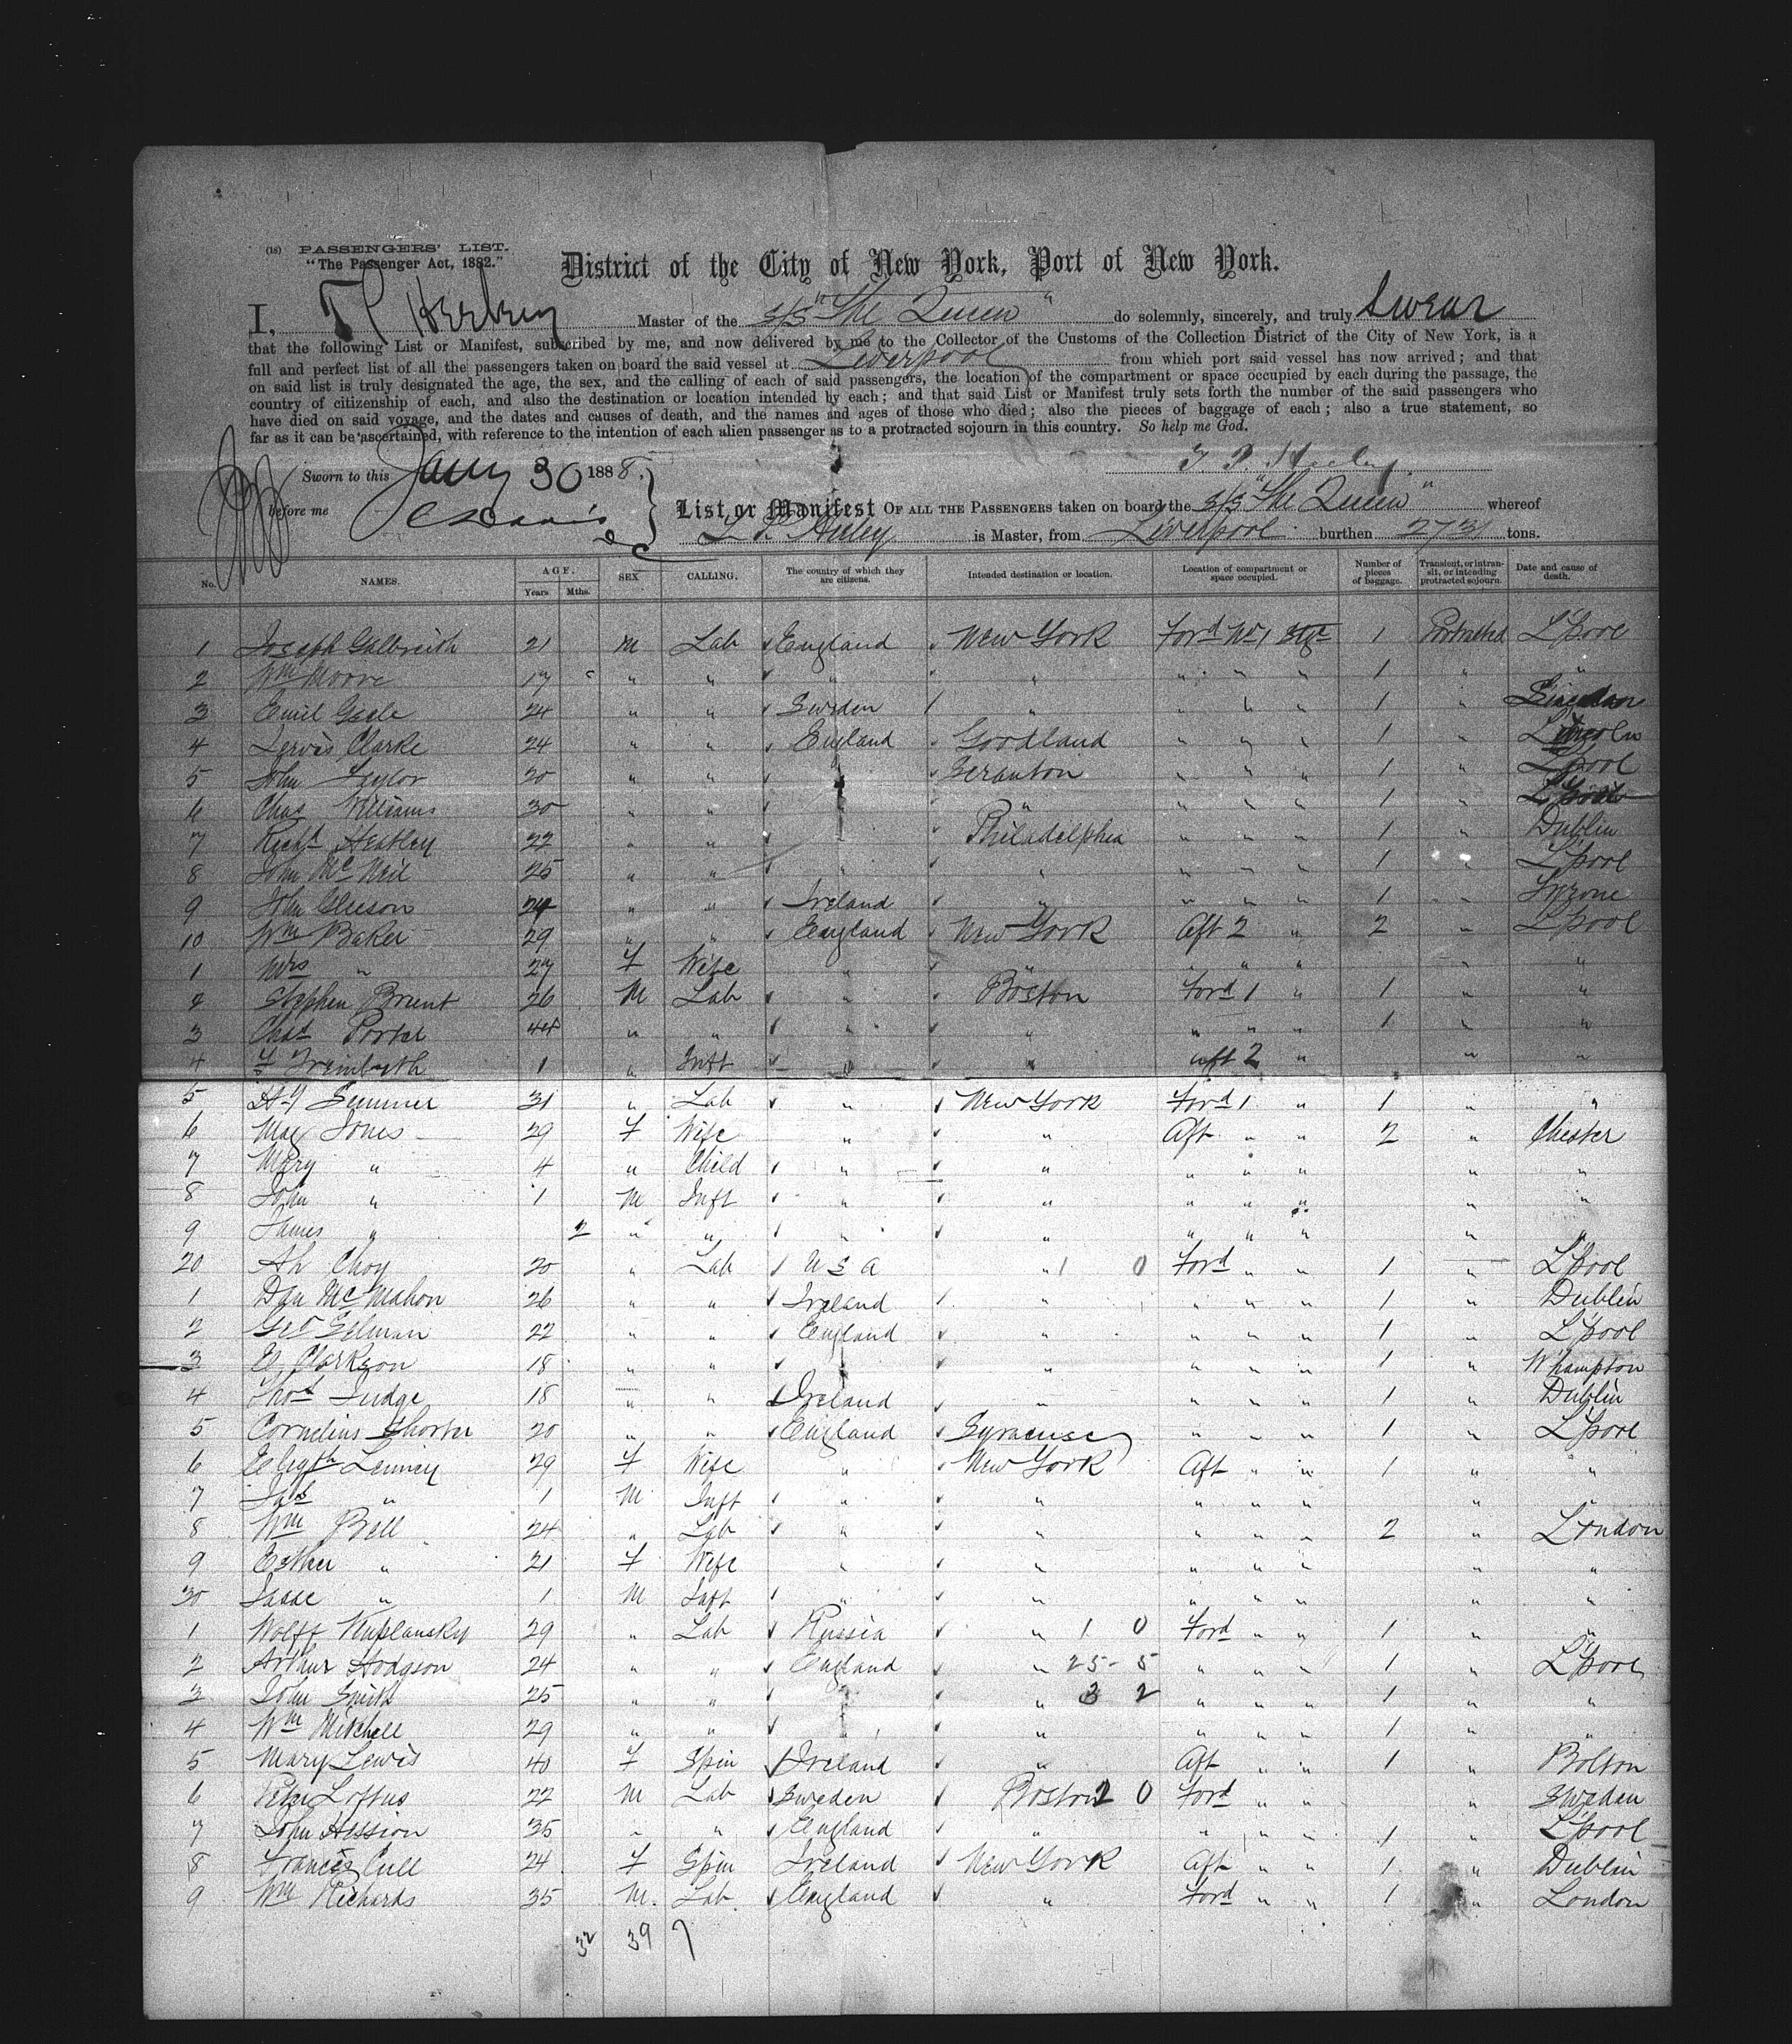 (18) PASSENGERS' LIST.
"The Passenger Act, 1882."
District of the City of New York, Port of New York.
I, Master of the s/s "The Queen" do solemnly, sincerely, and truly swear
that the following List or Manifest, subscribed by me, and now delivered by me to the Collector of the Customs of the Collection District of the City of New York, is a
full and perfect list of all the passengers taken on board the said vessel at Liverpool from which port said vessel has now arrived; and that
on said list is truly designated the age, the sex, and the calling of each of said passengers, the location of the compartment or space occupied by each during the passage, the
country of citizenship of each, and also the destination or location intended by each; and that said List or Manifest truly sets forth the number of the said passengers who
have died on said voyage, and the dates and causes of death, and the names and ages of those who died; also the pieces of baggage of each; also a true statement, so
far as it can be ascertained, with reference to the intention of each alien passenger as to a protracted sojourn in this country. So help me God.
Sworn to this Jany 30 1888.
before me
List or Manifest OF ALL THE PASSENGERS taken on board the s/s "The Queen" whereof
is Master, from Liverpool burthen 2731 tons.
No. NAMES. AGE. Years Mths. SEX CALLING. The country of which they are citizens. Intended destination or location. Location of compartment or space occupied. Number of pieces of baggage. Transient, or in transit, or intending protracted sojourn. Date and cause of death.
1 Joseph Galbreith 21 M Lab England New York Ford No 1 Stge 1 Protracted L'pool
2 Wm Moore 17 " " " " " " " 1 " "
3 Emil 24 " " Sweden " " " " 1 "
4 Jervis Clarke 24 " " England Goodland " " " 1 " Lincoln
5 John Taylor 20 " " " Scranton " " " 1 " L'pool
6 Chas Williams 30 " " " " " " " 1 "
7 Richd Heatley 22 " " " Philadelphia " " " 1 " Dublin
8 John McNeil 25 " " " " " " " 1 " L'pool
9 John Gleeson 24 " " Ireland " " " " 1 " Tyrone
10 Wm Baker 29 " " England New York Aft 2 " 2 " L'pool
1 Mrs " 27 F Wife " " " " " " "
2 Stephen Brunt 26 M Lab " Boston Ford 1 " 1 " "
3 Porter 44 " " " " " " " 1 " "
4 Trembath 1 " Inft " " aft 2 " " "
5 Hy Summer 31 " Lab " New York Ford 1 " 1 " "
6 Mag Jones 29 F Wife " " Aft " " 2 " Chester
7 Mary " 4 " Child " " " " " " "
8 John " 1 M Inft " " " " " " "
9 James " 2 " " " " " " " " "
20 Ah Choy 20 " Lab U S A " 1 0 Ford " " 1 " L'pool
1 Dan McMahon 26 " " Ireland " " " " 1 " Dublin
2 Geo Gilman 22 " " England " " " " 1 " L'pool
3 Clarkson 18 " " " " " " " 1 " W'hampton
4 Thos Judge 18 " " Ireland " " " " 1 " Dublin
5 Cornelius Shorter 20 " " England Syracuse " " " 1 " L'pool
6 Elizth Lenney 29 F Wife " New York Aft " " 1 " "
7 Jas " 1 M Inft " " " " " " "
8 Wm Bell 24 " Lab " " " " " 2 " London
9 Esther " 21 F Wife " " " " " " "
30 Isaac " 1 M Inft " " " " " " "
1 Wolff Kuplansky 29 " Lab Russia " 1 0 Ford " " 1 " "
2 Arthur Hodgson 24 " " England " 25-5 " " " 1 " L'pool
3 John Smith 25 " " " " 3 2 " " " 1 " "
4 Wm Mitchell 29 " " " " " " " 1 " "
5 Mary Lewis 40 F Spin Ireland " Aft " " 1 " Bolton
6 Peter Loftus 22 M Lab Sweden Boston 2 0 Ford " " " Sweden
7 John Hession 35 " " England " " " " 1 " L'pool
8 Francis Cull 24 F Spin Ireland New York Aft " " 1 " Dublin
9 Wm Richards 35 M. Lab England " Ford " " 1 " London
32 39 7